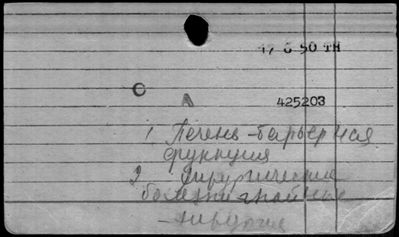 17 6 50 TH
C
A
425203
1. Печень - барьерная
функция
2 Хирургические
болезни гнойные